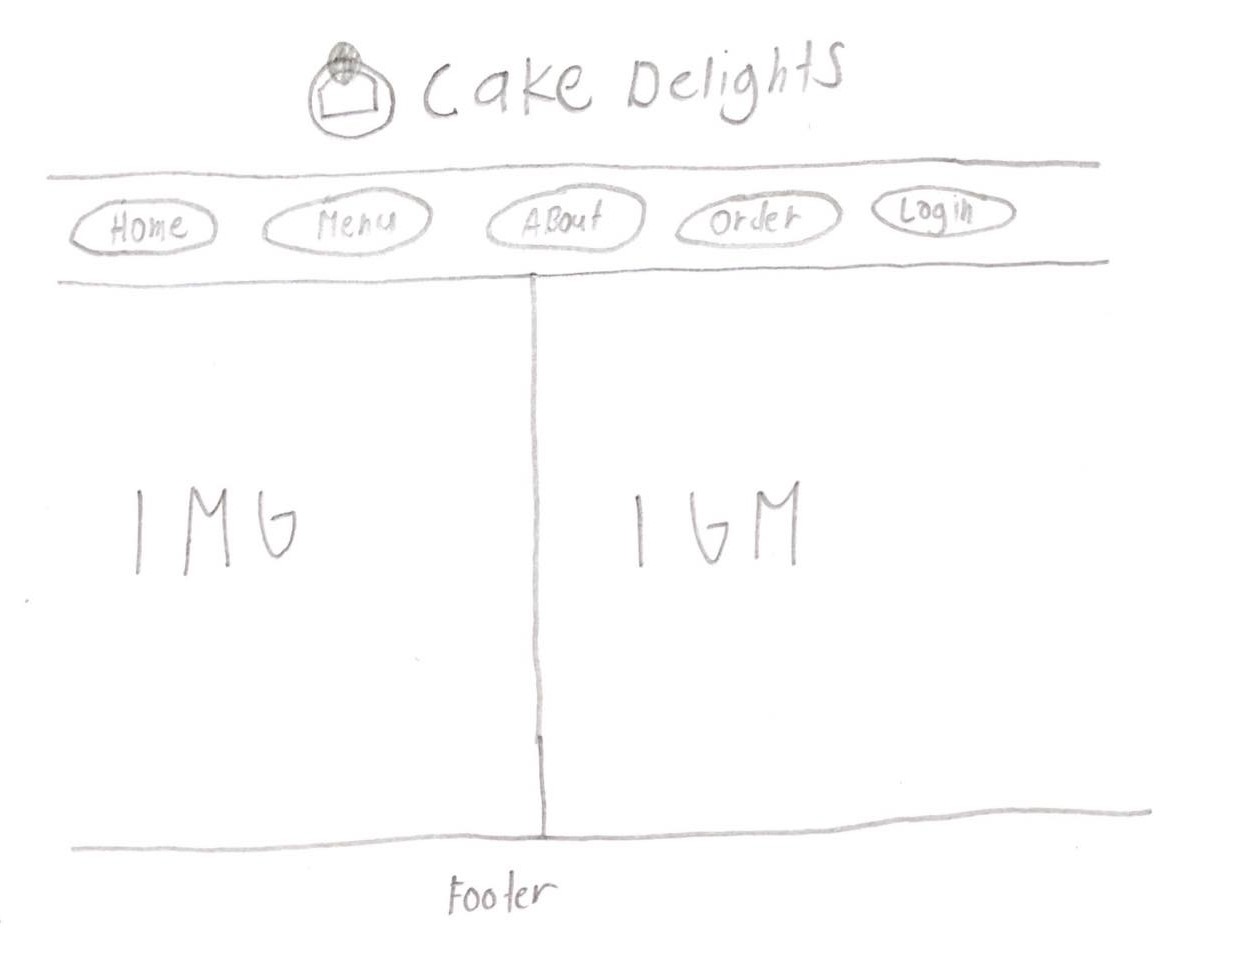 Cake Delights
Home Menu About Order Login
IMG IGM
Footer